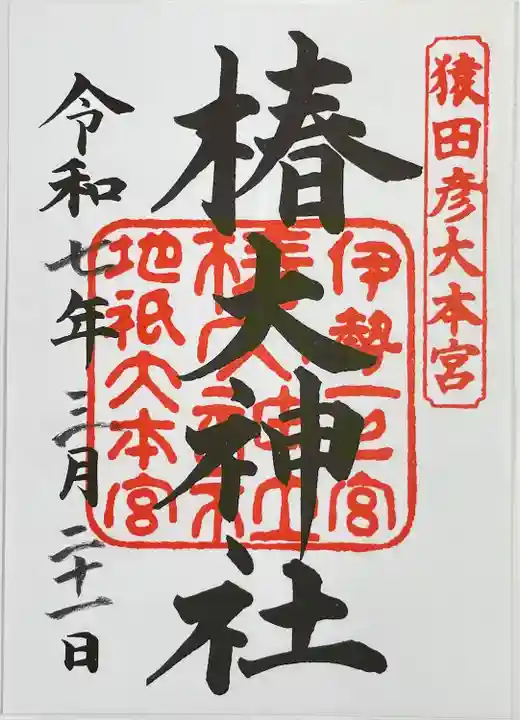 猿田彦大本宮
伊勢一之宮
椿大神社
椿大神社
地祇大本宮
令和七年三月二十一日